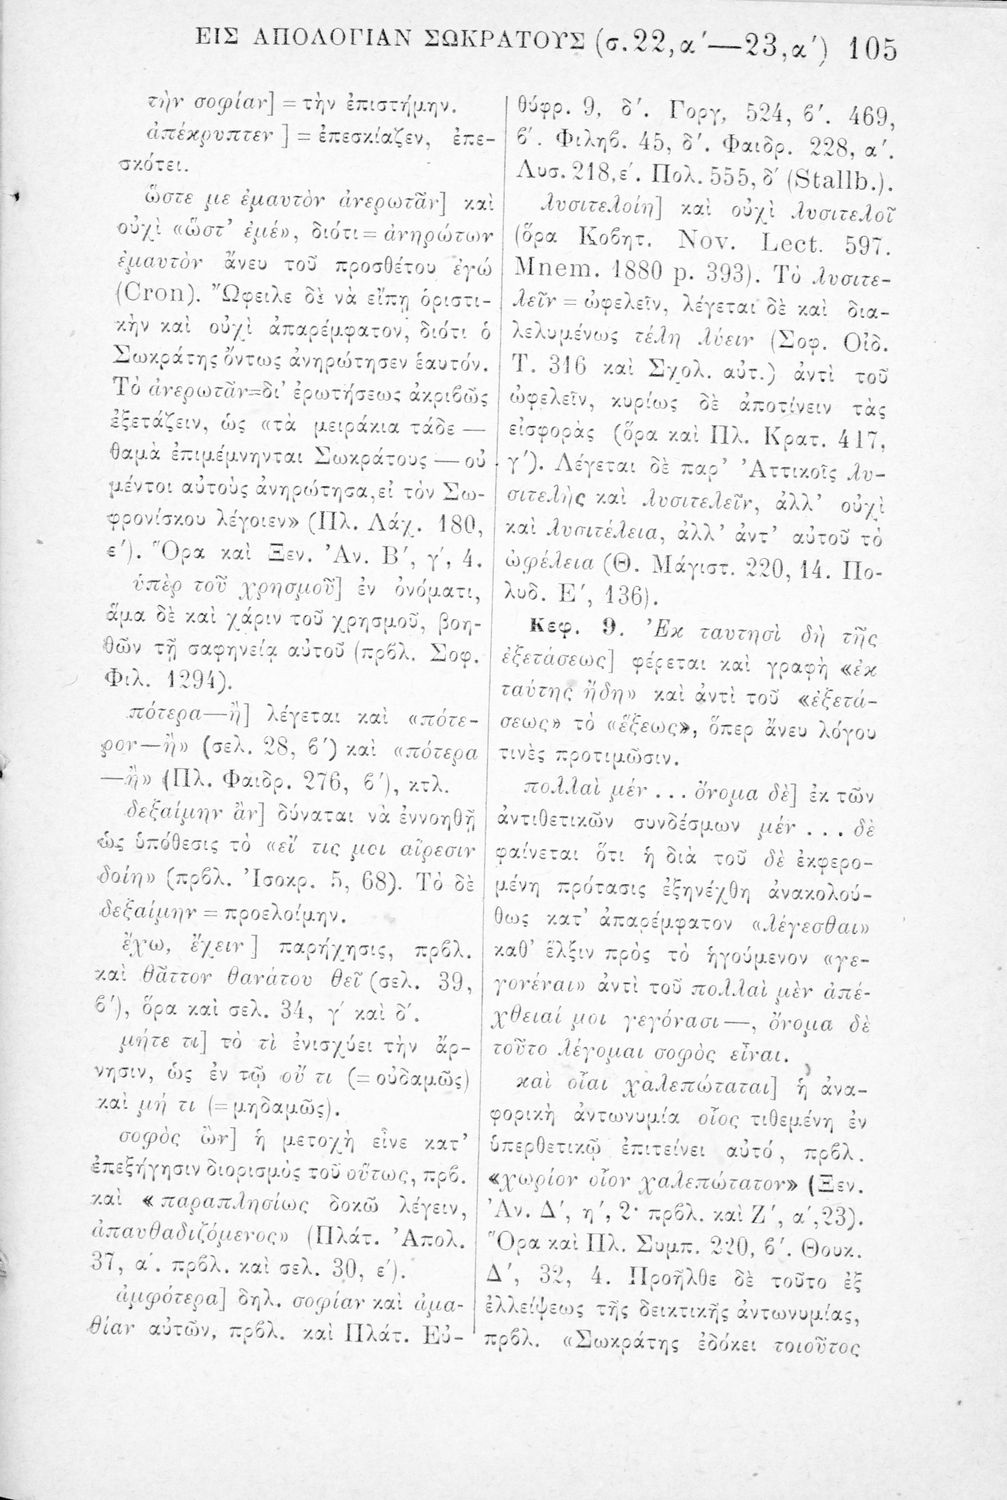 ΕΙΣ ΑΠΟΛΟΓΙΑΝ ΣΩΚΡΑΤΟΥΣ (σ.22,α΄—23,α΄) 105
τὴν σοφίαν] = τὴν ἐπιστήμην.
ἀπέκρυπτεν ] = ἐπεσκίαζεν, ἐπε-
σκότει.
ὥστε με ἐμαυτὸν ἀνερωτᾶν] καὶ
οὐχὶ «ὥστ’ ἐμέ», διότι = ἀνηρώτων
ἐμαυτὸν ἄνευ τοῦ προσθέτου ἐγώ
(Cron). Ὤφειλε δὲ νὰ εἴπῃ ὁριστι-
κὴν καὶ οὐχὶ ἀπαρέμφατον, διότι ὁ
Σωκράτης ὄντως ἀνηρώτησεν ἑαυτόν.
Τὸ ἀνερωτᾶν=δι’ ἐρωτήσεως ἀκριβῶς
ἐξετάζειν, ὡς «τὰ μειράκια τάδε —
θαμὰ ἐπιμέμνηνται Σωκράτους — οὐ
μέντοι αὐτοὺς ἀνηρώτησα, εἰ τὸν Σω-
φρονίσκου λέγοιεν» (Πλ. Λάχ. 180,
ε΄). Ὅρα καὶ Ξεν. Ἀν. Β΄, γ΄, 4.
ὑπὲρ τοῦ χρησμοῦ] ἐν ὀνόματι,
ἅμα δὲ καὶ χάριν τοῦ χρησμοῦ, βοη-
θῶν τῇ σαφηνείᾳ αὐτοῦ (πρβλ. Σοφ.
Φιλ. 1294).
πότερα—ἢ] λέγεται καὶ «πότε-
ρον—ἢ» (σελ. 28, β΄) καὶ «πότερα
—ἢ» (Πλ. Φαιδρ. 276, β΄), κτλ.
δεξαίμην ἂν] δύναται νὰ ἐννοηθῇ
ὡς ὑπόθεσις τὸ «εἴ τις μοι αἵρεσιν
δοίη» (πρβλ. Ἰσοκρ. 5, 68). Τὸ δὲ
δεξαίμην = προελοίμην.
ἔχω, ἔχειν ] παρήχησις, πρβλ.
καὶ θᾶττον θανάτου θεῖ (σελ. 39,
β΄), ὅρα καὶ σελ. 34, γ΄ καὶ δ΄.
μήτε τι] τὸ τὶ ἐνισχύει τὴν ἄρ-
νησιν, ὡς ἐν τῷ οὔ τι (= οὐδαμῶς)
καὶ μή τι (= μηδαμῶς).
σοφὸς ὢν] ἡ μετοχὴ εἶνε κατ’
ἐπεξήγησιν διορισμὸς τοῦ οὕτως, πρβ.
καὶ « παραπλησίως δοκῶ λέγειν,
ἀπαυθαδιζόμενος» (Πλάτ. Ἀπολ.
37, α΄. πρβλ. καὶ σελ. 30, ε΄).
ἀμφότερα] δηλ. σοφίαν καὶ ἀμα-
θίαν αὐτῶν, πρβλ. καὶ Πλάτ. Εὐ-
θύφρ. 9, δ΄. Γοργ, 524, β΄. 469,
β΄. Φιληβ. 45, δ΄. Φαιδρ. 228, α΄.
Λυσ. 218, ε΄. Πολ. 555, δ΄ (Stallb.).
λυσιτελοίη] καὶ οὐχὶ λυσιτελοῖ
(ὅρα Κοβητ. Nov. Lect. 597.
Mnem. 1880 p. 393). Τὸ λυσιτε-
λεῖν = ὠφελεῖν, λέγεται δὲ καὶ δια-
λελυμένως τέλη λύειν (Σοφ. Οἰδ.
Τ. 316 καὶ Σχολ. αὐτ.) ἀντὶ τοῦ
ὠφελεῖν, κυρίως δὲ ἀποτίνειν τὰς
εἰσφορὰς (ὅρα καὶ Πλ. Κρατ. 417,
γ΄). Λέγεται δὲ παρ’ Ἀττικοῖς λυ-
σιτελὴς καὶ λυσιτελεῖν, ἀλλ’ οὐχὶ
καὶ λυσιτέλεια, ἀλλ’ ἀντ’ αὐτοῦ τὸ
ὠφέλεια (Θ. Μάγιστ. 220, 14. Πο-
λυδ. Ε΄, 136).
Κεφ. 9. Ἐκ ταυτησὶ δὴ τῆς
ἐξετάσεως] φέρεται καὶ γραφὴ «ἐκ
ταύτης ἤδη» καὶ ἀντὶ τοῦ «ἐξετά-
σεως» τὸ «ἕξεως», ὅπερ ἄνευ λόγου
τινὲς προτιμῶσιν.
πολλαὶ μέν ... ὄνομα δὲ] ἐκ τῶν
ἀντιθετικῶν συνδέσμων μέν ... δὲ
φαίνεται ὅτι ἡ διὰ τοῦ δὲ ἐκφερο-
μένη πρότασις ἐξηνέχθη ἀνακολού-
θως κατ’ ἀπαρέμφατον «λέγεσθαι»
καθ’ ἕλξιν πρὸς τὸ ἡγούμενον «γε-
γονέναι» ἀντὶ τοῦ πολλαὶ μὲν ἀπέ-
χθειαί μοι γεγόνασι—, ὄνομα δὲ
τοῦτο λέγομαι σοφὸς εἶναι.
καὶ οἷαι χαλεπώταται] ἡ ἀνα-
φορικὴ ἀντωνυμία οἷος τιθεμένη ἐν
ὑπερθετικῷ ἐπιτείνει αὐτό, πρβλ.
«χωρίον οἷον χαλεπώτατον» (Ξεν.
Ἀν. Δ΄, η΄, 2· πρβλ. καὶ Ζ΄, α΄, 23).
Ὅρα καὶ Πλ. Συμπ. 220, β΄. Θουκ.
Δ΄, 32, 4. Προῆλθε δὲ τοῦτο ἐξ
ἐλλείψεως τῆς δεικτικῆς ἀντωνυμίας,
πρβλ. «Σωκράτης ἐδόκει τοιοῦτος